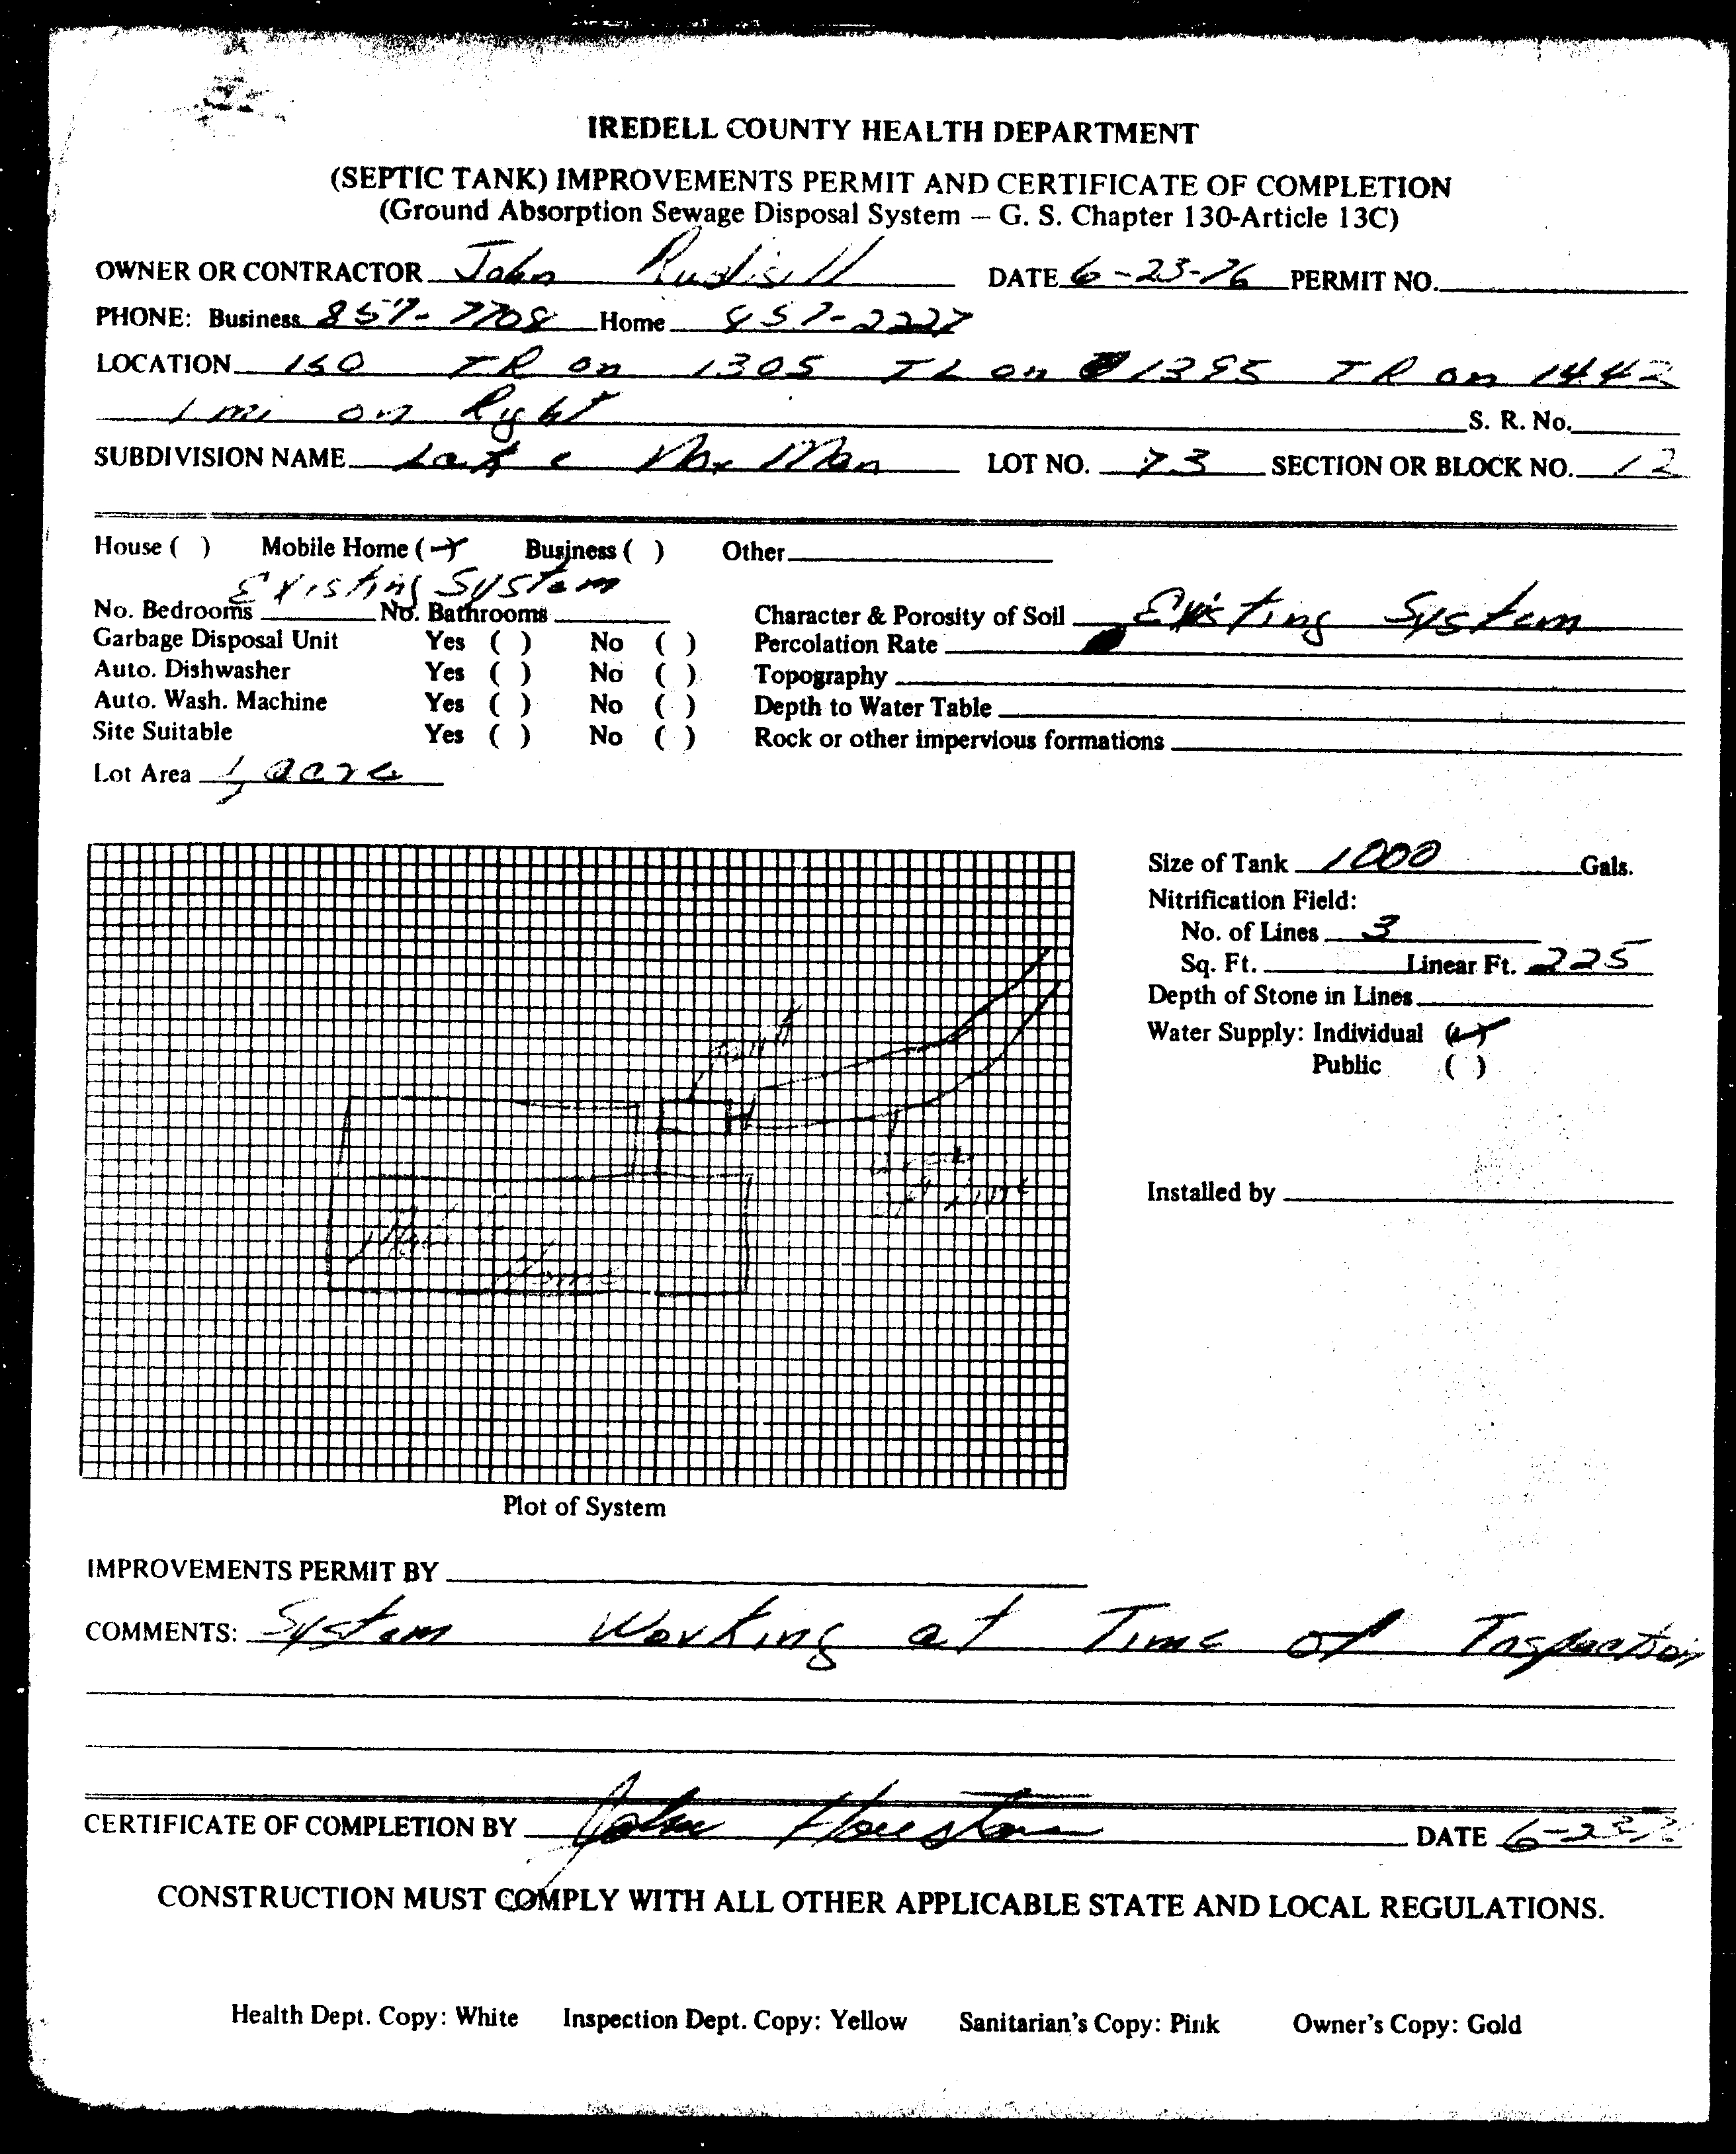 IREDELL COUNTY HEALTH DEPARTMENT
(SEPTIC TANK) IMPROVEMENTS PERMIT AND CERTIFICATE OF COMPLETION
(Ground Absorption Sewage Disposal System – G. S. Chapter 130-Article 13C)
OWNER OR CONTRACTOR John Rudisill DATE 6-23-76 PERMIT NO.
PHONE: Business 857-7708 Home 857-2227
LOCATION 150 TR on 1305 TL on 1395 TR on 1442
1 mi on Right S. R. No.
SUBDIVISION NAME Lake Nor Man LOT NO. 73 SECTION OR BLOCK NO. 12
House ( ) Mobile Home ( ) Business ( ) Other
Existing System
No. Bedrooms No. Bathrooms Character & Porosity of Soil Existing System
Garbage Disposal Unit Yes ( ) No ( ) Percolation Rate
Auto. Dishwasher Yes ( ) No ( ) Topography
Auto. Wash. Machine Yes ( ) No ( ) Depth to Water Table
Site Suitable Yes ( ) No ( ) Rock or other impervious formations
Lot Area acre
Size of Tank 1000 Gals.
Nitrification Field:
No. of Lines 3
Sq. Ft. Linear Ft. 225
Depth of Stone in Lines
Water Supply: Individual ( )
Public ( )
Tank
Installed by
Home
Plot of System
IMPROVEMENTS PERMIT BY
COMMENTS: System Working at Time of Inspection
CERTIFICATE OF COMPLETION BY John Houston DATE 6-23-76
CONSTRUCTION MUST COMPLY WITH ALL OTHER APPLICABLE STATE AND LOCAL REGULATIONS.
Health Dept. Copy: White Inspection Dept. Copy: Yellow Sanitarian's Copy: Pink Owner's Copy: Gold